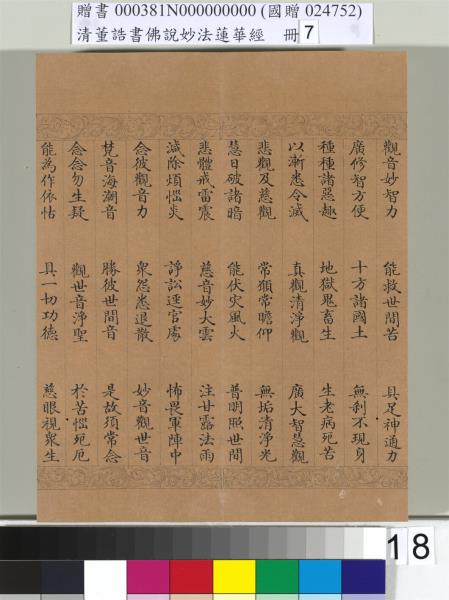 贈書 000381N000000000 (國贈 024752)
清董誥書佛說妙法蓮華經 冊 7
觀音妙智力 能救世間苦 具足神通力
廣修智方便 十方諸國土 無剎不現身
種種諸惡趣 地獄鬼畜生 生老病死苦
以漸悉令滅 真觀清淨觀 廣大智慧觀
悲觀及慈觀 常願常瞻仰 無垢清淨光
慧日破諸暗 能伏災風火 普明照世間
悲體戒雷震 慈音妙大雲 注甘露法雨
滅除煩惱炎 諍訟經官處 怖畏軍陣中
念彼觀音力 衆怨悉退散 妙音觀世音
梵音海潮音 勝彼世間音 是故須常念
念念勿生疑 觀世音淨聖 於苦惱死厄
能為作依怙 具一切功德 慈眼視衆生
18